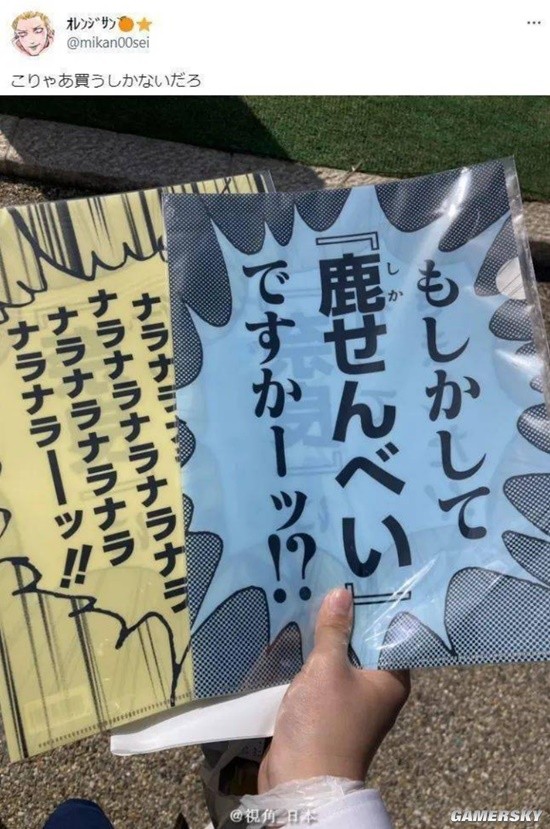 ｵﾚﾝｼﾞｻﾝ🍊⭐
@mikan00sei
こりゃあ買うしかないだろ
もしかして
『鹿せんべい』
しか
ですかーッ!?
ナラナラナラナラ
ナラナラナラナラ
ナラナラナラナラ
ナラナラナラーッ!!
@視角_日本
GAMERSKY